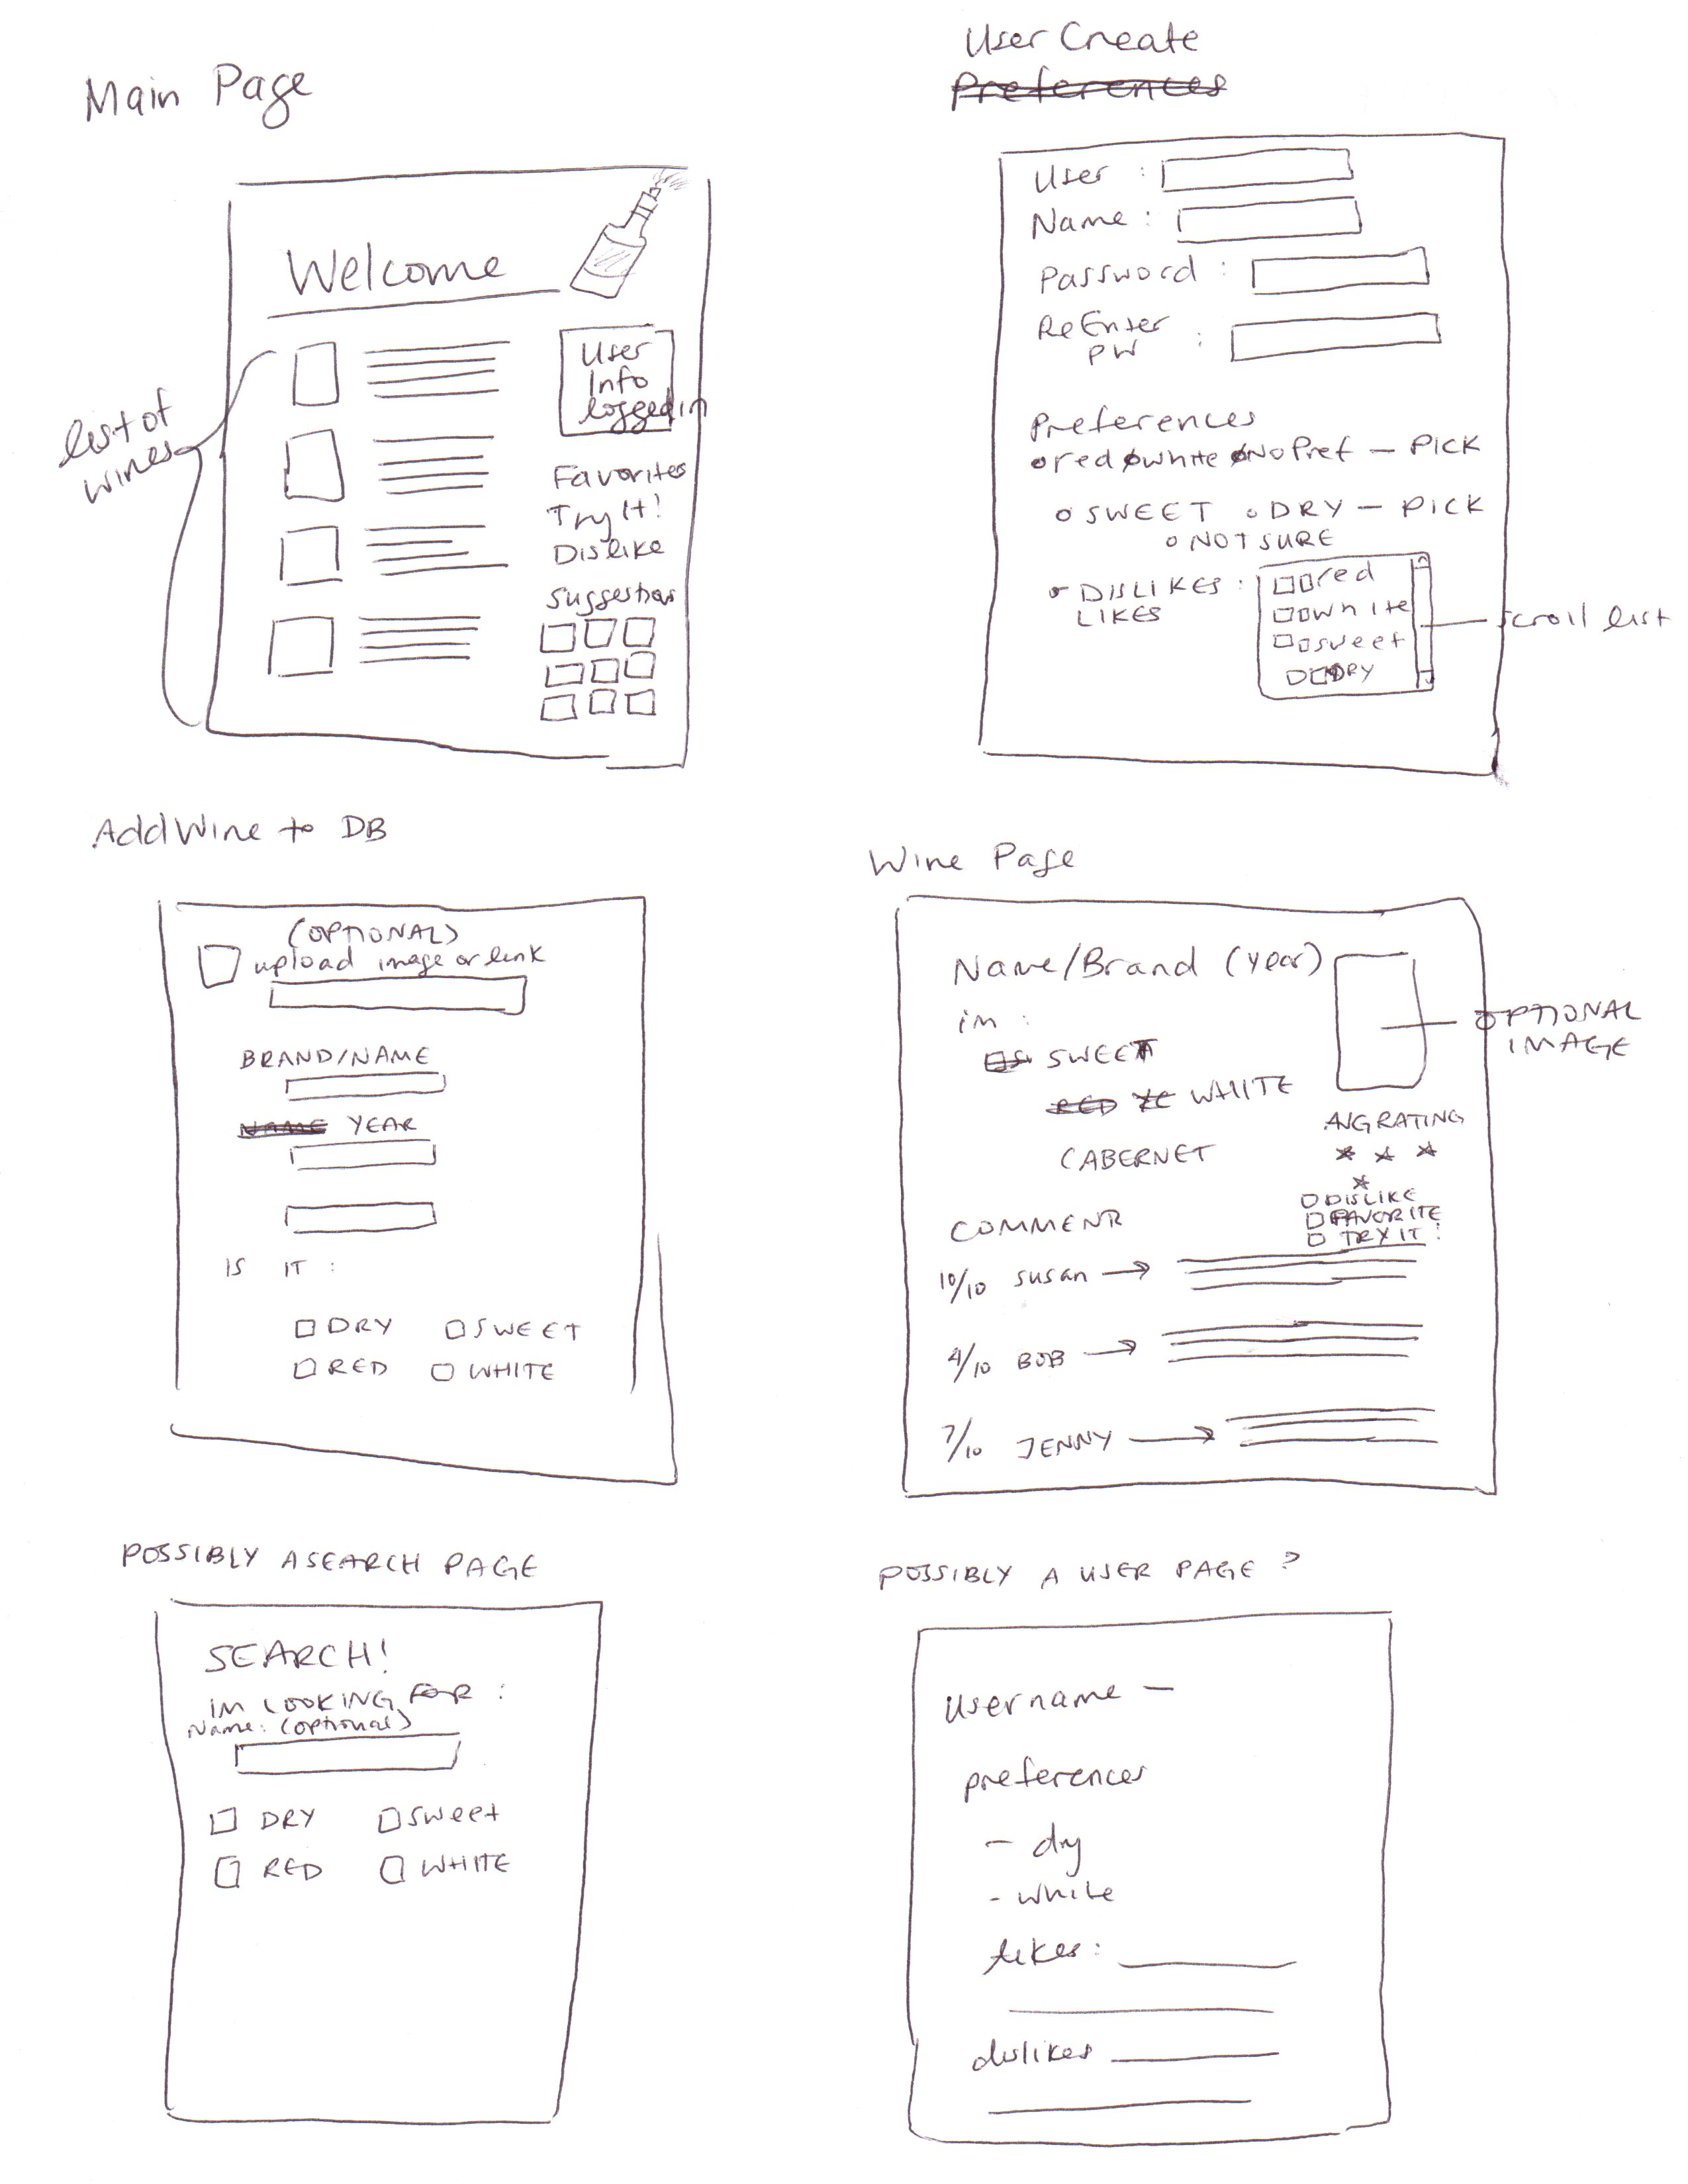 Main Page
Welcome
list of
wines
User
Info
logged in
Favorites
Try It!
Dislike
Suggestions
User Create
Preferences
User :
Name :
Password :
ReEnter
PW :
Preferences
red white No Pref — PICK
SWEET DRY — PICK
NOT SURE
DISLIKES :
LIKES
red
white
sweet
DRY
scroll list
Add Wine to DB
(OPTIONAL)
upload image or link
BRAND/NAME
NAME YEAR
IS IT :
DRY SWEET
RED WHITE
Wine Page
Name/Brand (year)
im :
SWEET
RED WHITE
CABERNET
OPTIONAL
IMAGE
AVG RATING
DISLIKE
FAVORITE
TRY IT!
COMMENR
10/10 Susan →
4/10 BOB →
7/10 JENNY →
POSSIBLY A SEARCH PAGE
SEARCH!
IM LOOKING FOR :
Name: (optional)
DRY sweet
RED WHITE
POSSIBLY A USER PAGE ?
Username —
preferences
— dry
- white
likes :
dislikes